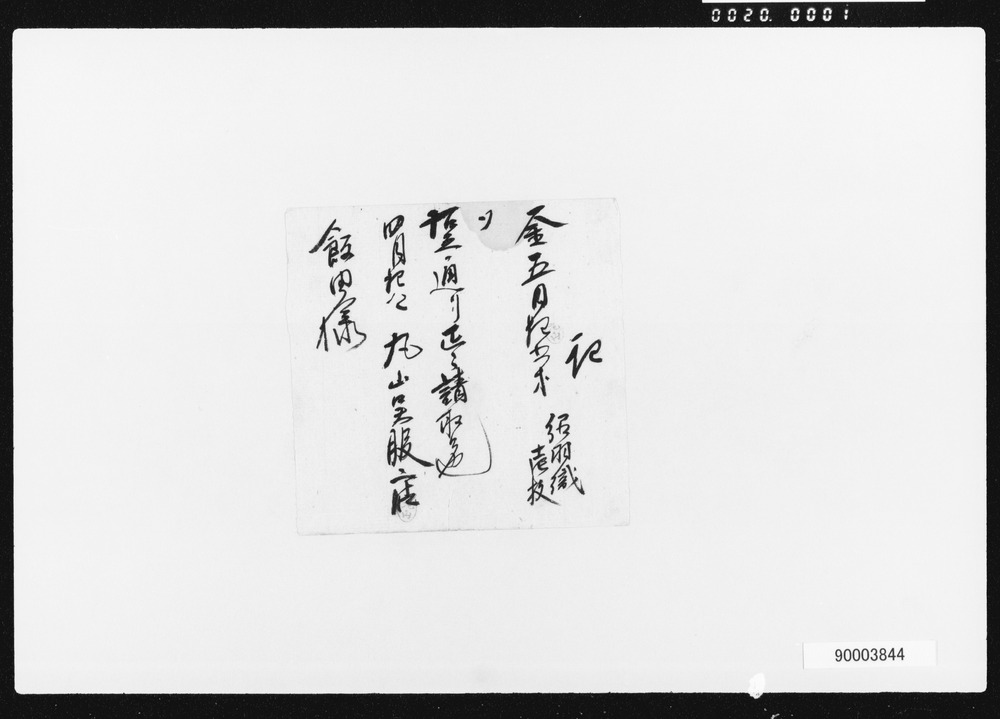 0020. 0001
記
金五円
絽羽織
壱枚
〆
右之通り正ニ請取候也
四月
丸山呉服店
飯田様
90003844